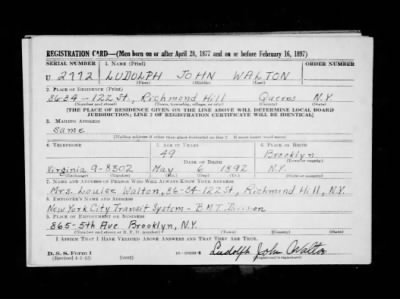 REGISTRATION CARD—(Men born on or after April 28, 1877 and on or before February 16, 1897)
SERIAL NUMBER 1. NAME (Print) ORDER NUMBER
U 2772 LUDOLPH JOHN WALTON
(First) (Middle) (Last)
2. PLACE OF RESIDENCE (Print)
86-34-122 St., Richmond Hill Queens N.Y.
(Number and street) (Town, township, village, or city) (County) (State)
[THE PLACE OF RESIDENCE GIVEN ON THE LINE ABOVE WILL DETERMINE LOCAL BOARD
JURISDICTION; LINE 2 OF REGISTRATION CERTIFICATE WILL BE IDENTICAL]
3. MAILING ADDRESS
Same
[Mailing address if other than place indicated on line 2. If same insert word same]
4. TELEPHONE 5. AGE IN YEARS 6. PLACE OF BIRTH
49 Brooklyn
DATE OF BIRTH (Town or county)
Virginia 9-8302 May 6 1892 N.Y.
(Exchange) (Number) (Mo.) (Day) (Yr.) (State or country)
7. NAME AND ADDRESS OF PERSON WHO WILL ALWAYS KNOW YOUR ADDRESS
Mrs. Louise Walton, 86-34-122 St, Richmond Hill, N.Y.
8. EMPLOYER'S NAME AND ADDRESS
New York City Transit System - B.M.T. Division
9. PLACE OF EMPLOYMENT OR BUSINESS
865-5th Ave Brooklyn, N.Y.
(Number and street or R. F. D. number) (Town) (County) (State)
I AFFIRM THAT I HAVE VERIFIED ABOVE ANSWERS AND THAT THEY ARE TRUE.
D. S. S. Form 1
(Revised 4-1-42) (over) Ludolph John Walton